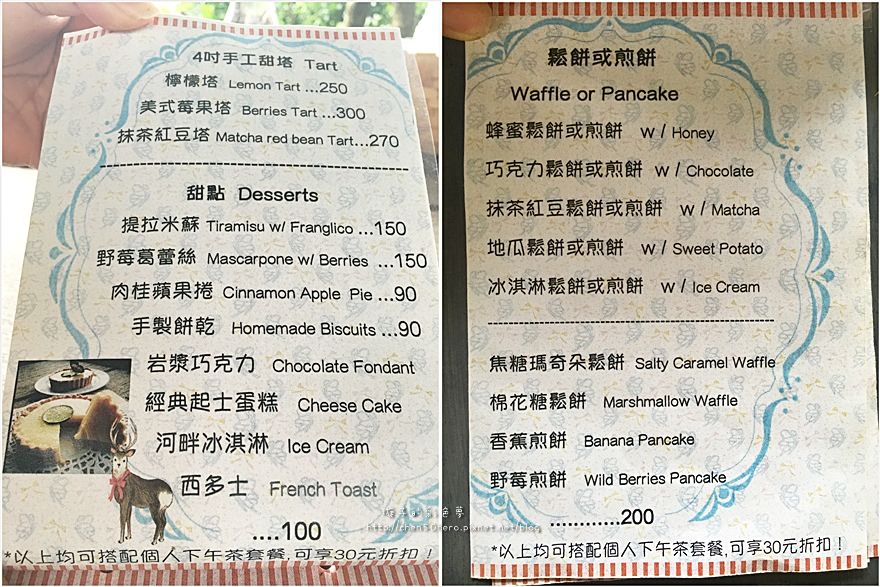 4吋手工甜塔 Tart
檸檬塔 Lemon Tart ...250
美式莓果塔 Berries Tart ...300
抹茶紅豆塔 Matcha red bean Tart...270
甜點 Desserts
提拉米蘇 Tiramisu w/ Franglico ...150
野莓葛蕾絲 Mascarpone w/ Berries ...150
肉桂蘋果捲 Cinnamon Apple Pie ...90
手製餅乾 Homemade Biscuits ...90
岩漿巧克力 Chocolate Fondant
經典起士蛋糕 Cheese Cake
河畔冰淇淋 Ice Cream
西多士 French Toast
....100
*以上均可搭配個人下午茶套餐,可享30元折扣！
鬆餅或煎餅
Waffle or Pancake
蜂蜜鬆餅或煎餅 w / Honey
巧克力鬆餅或煎餅 w / Chocolate
抹茶紅豆鬆餅或煎餅 w / Matcha
地瓜鬆餅或煎餅 w / Sweet Potato
冰淇淋鬆餅或煎餅 w / Ice Cream
焦糖瑪奇朵鬆餅 Salty Caramel Waffle
棉花糖鬆餅 Marshmallow Waffle
香蕉煎餅 Banana Pancake
野莓煎餅 Wild Berries Pancake
............200
*以上均可搭配個人下午茶套餐,可享30元折扣！